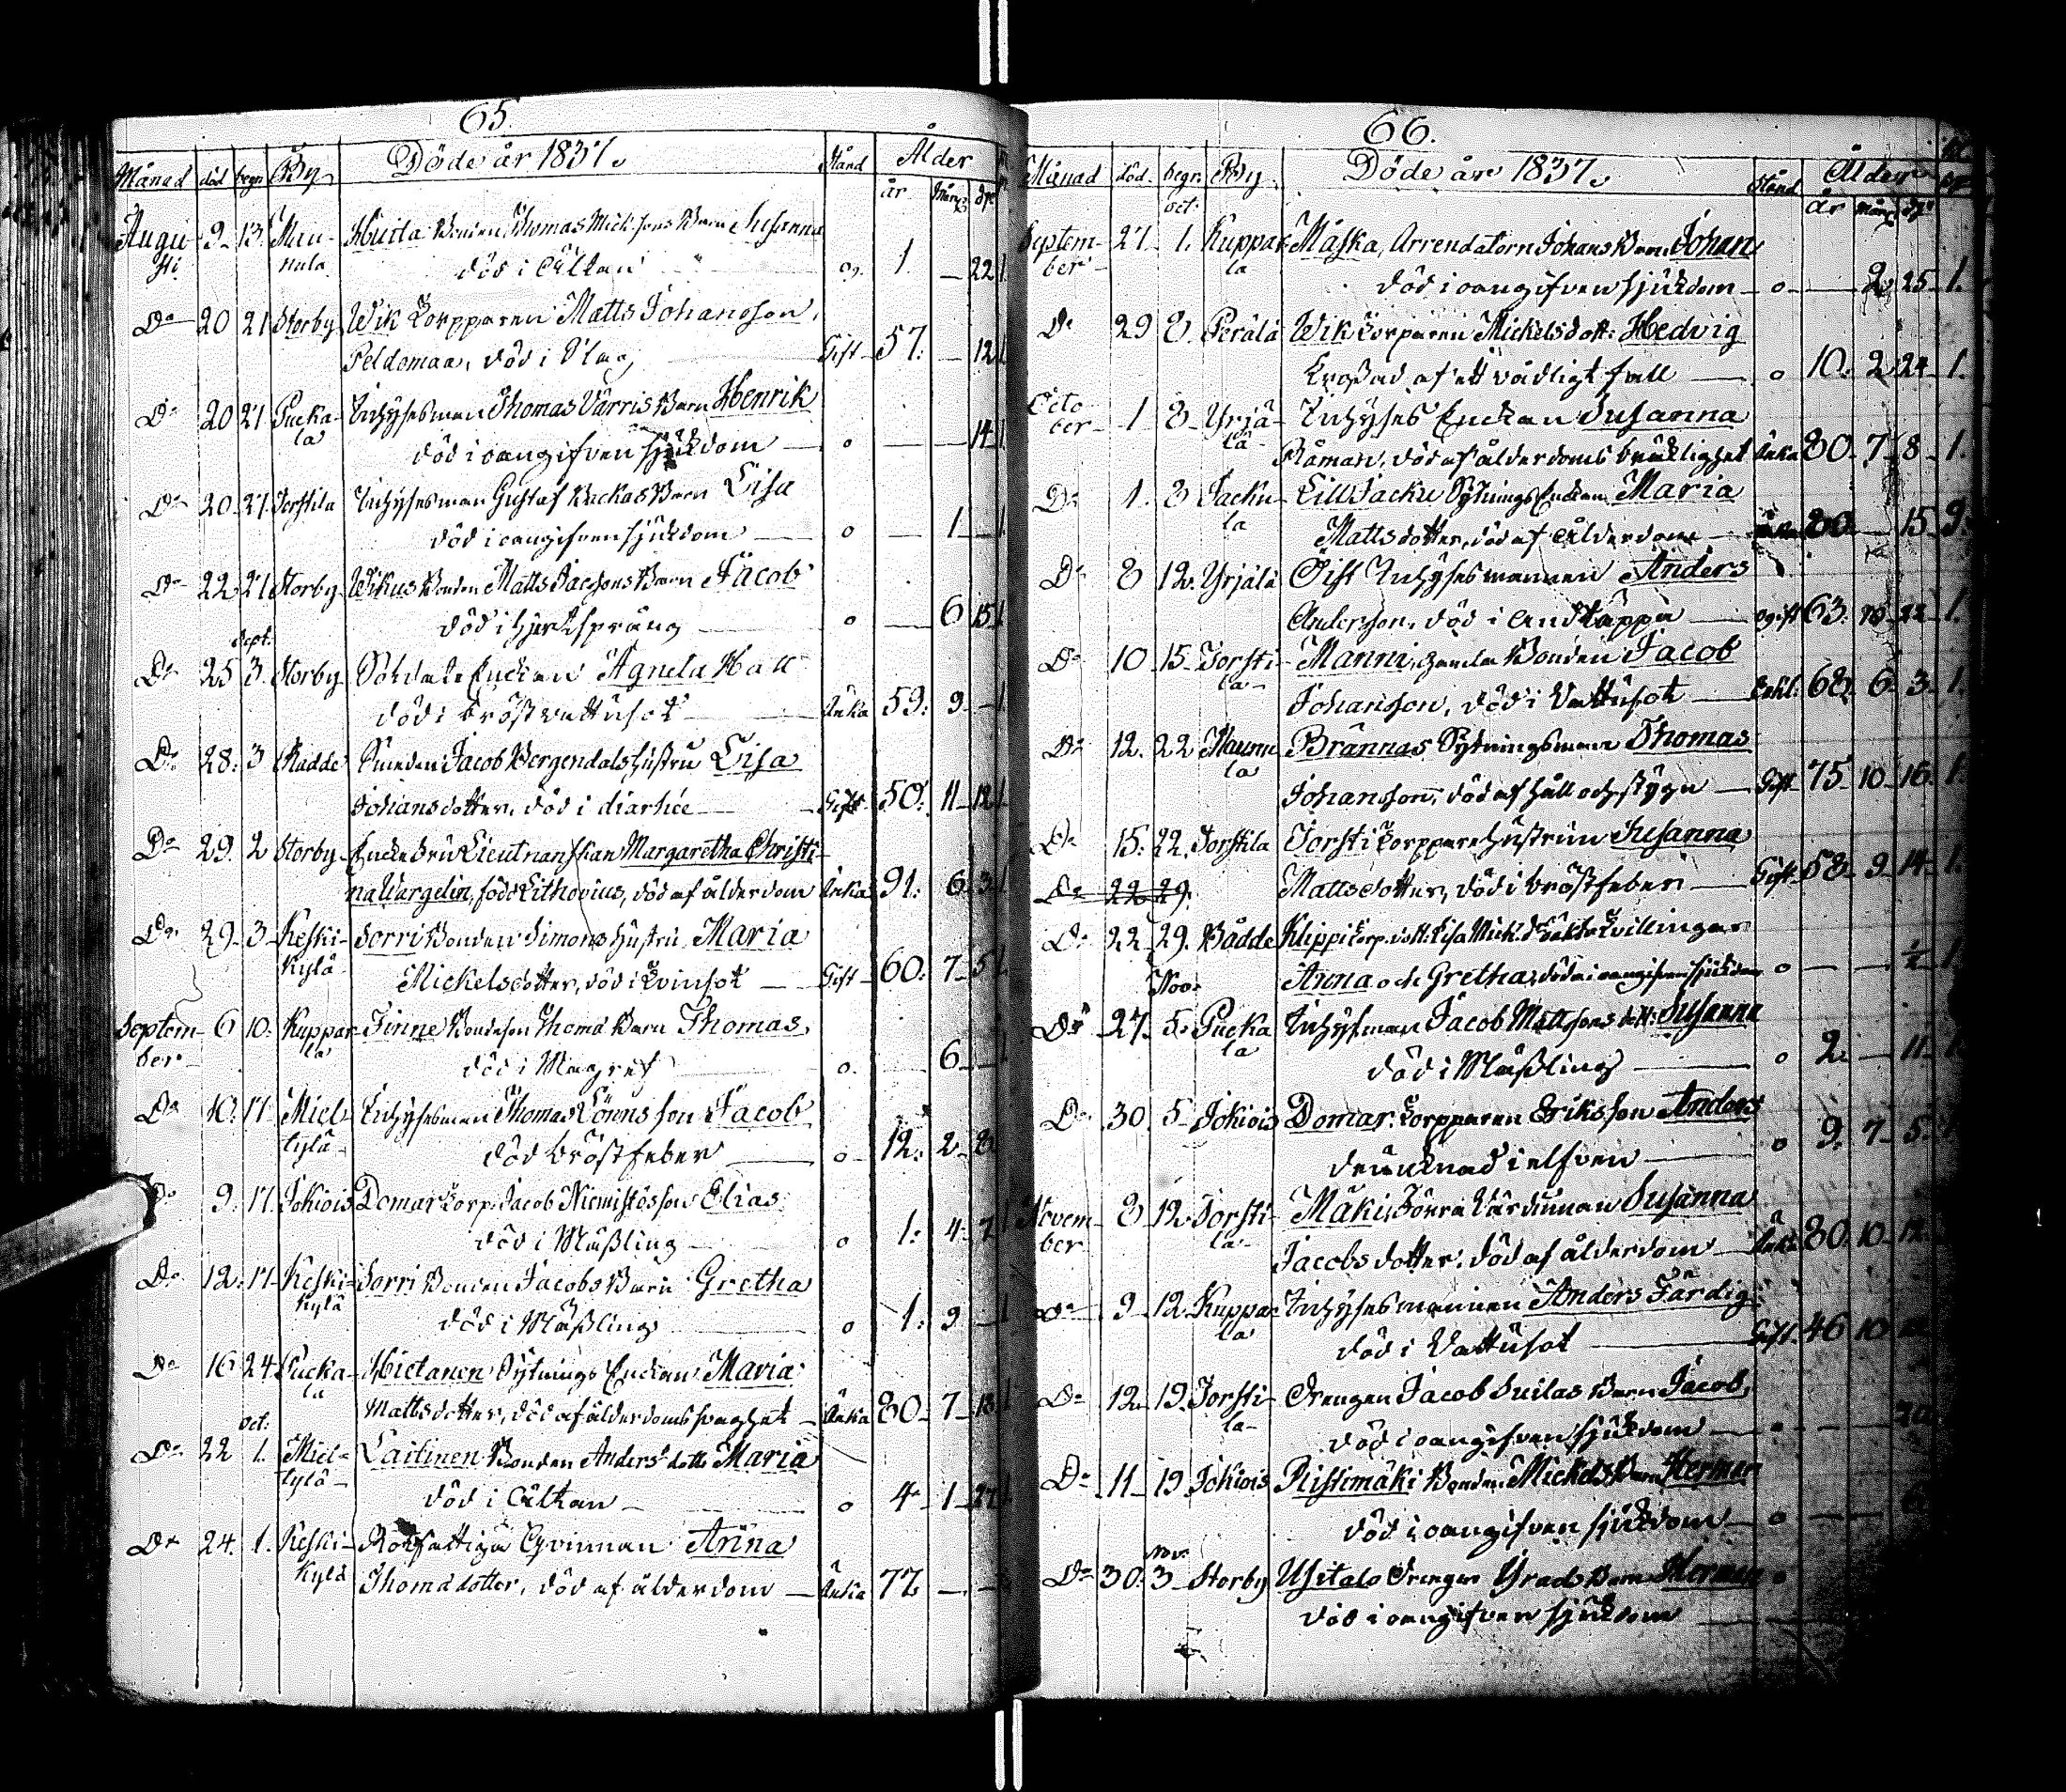 65.
Månad död begr. By Döde år 1837. Stånd Ålder
år mån dr
Augu- 9 13. Mau- Huita Bonden Thomas Mickelsons Barn Susanna
sti nula död i Åltan og. 1. — 22 1
Do 20 21 Storby Wik Torpparen Matts Johansson,
Peldomaa, död i Slag Gift 57. — 12 1
Do 20 27 Pucka- Inhysesman Thomas Värris Barn Henrik
la död i oangifven sjukdom o — — 14 1
Do 20 27. Torstila Inhysesman Gustaf Backas Barn Lisa
död i oangifven sjukdom o — 1 — 1
Do 22 27 Storby Wikus Bonden Matts Jacssons Barn Jacob
död i hjertsprång o — 6 15 1
Sept.
Do 25 3. Storby Soldats Enckan Agneta Hall
död i bröst vattusot Änka 59. 9 — 1
Do 28. 3 Radde Smeden Jacob Bergendals hustru Lisa
Johansdotter, död i diarhée Gift 50. 11 12 1
Do 29. 2 Storby Encke Fru Lieutnanskan Margaretha Christi-
na Wargelin, född Lithovius, död af ålderdom Änka 91. 6 3 1
Do 29. 3 Keski- Sorri Bonden Simons hustru Maria
kylä Mickelsdotter, död i Tvinsot Gift 60. 7 5 1
Septem- 6 10. Kuppar- Finne Bondeson Thoma Barn Thomas,
ber la död i Magref o. — 6 —
Do 10. 17. Miel- Inhysesman Thomas Lönns son Jacob
tylä död bröstfeber o 12. 2 8
Do 9. 17. Jokiois Domar Torp. Jacob Niemistös son Elias
död i Mäßling o 1. 4 7 1
Do 12. 17. Keski- Sorri Bonden Jacobs Barn Gretha
kylä död i Mäßling o 1. 9 — 1
Do 16 24 Pucka- Hietanen Sytnings Enckan Maria
la Mattsdotter, död af ålderdoms svaghet Änka 80 7 18 1
oct:
Do 22 1. Miel- Laitinen Bonden Anders dott. Maria
tylä död i Åltan o 4 1 27 1
Do 24. 1. Keski- Rotefattiga Qvinnan Anna
kylä Thomadotter, död af ålderdom Änka 77 — —
66.
Månad död. begr. By Döde år 1837. Stånd Ålder
oct: år mån dr
Septem- 27 1. Kuppar- Måska, Arrendatorn Johans Barn Johan
ber la död i oangifven sjukdom o — 2 25 1.
Do 29 8. Perälä Wik Torparen Mickels dott: Hedvig
Kroßad af ett vådligt fall o 10. 2 24 1.
Octo 1 8 Yrjä- Inhyses Enckan Susanna
ber lä Råman, död af ålderdoms bräcklighet Änka 80. 7 8 1.
Do 1. 8 Jacku- Lill Jacku Sytnings Enckan Maria
la Mattsdotter, död af ålderdom 80. — 15 9.
Do 8 12. Yrjälä Öist Inhysesmannen Anders
Andersson, död i Andtäppa Ogift 63. 10 22 1.
Do 10 15. Torsti- Manni, gamla Bonden Jacob
la Johansson, död i Vattusot Enkl. 68. 6. 3. 1.
Do 12. 22 Haunu Brännas Sytningsman Thomas
la Johansson, död af håll och styng Gift 75 10 16 1.
Do 15. 22. Torstila Torsti Torppare hustrun Susanna
Do 22 29. Mattsdotter, död i bröstfeber Gift 58 9 14 1.
Do 22 29. Bådde Klippi Torp. dott. Lisa Mick.d. oäkta tvillingar
Nov. Anna och Gretha, döda i oangifven sjukdom o — — ½ 1.
Do 27. 5. Pucka Inhysman Jacob Mattssons dott: Susanna
la död i Mäßling o 2. — 11 1.
Do 30 5 Jokiois Domar. Torpparen Eriks son Anders
drunknad i elfven o 9. 7 5.
Novem- 8 12 Torsti- Mäki, Tönra Värdinnan Susanna
ber la Jacobsdotter, död af ålderdom Änka 80. 10 12.
Do 9 12 Kuppar Inhysesmannen Anders Färdig
la död i Vattusot Gift 46 10
Do 12 19. Torsti- Drengen Jacob Suilas Barn Jacob,
la död i oangifven sjukdom o — —
Do 11 19 Jokiois Ristimäki Bonden Mickels Barn Herman
död i oangifven sjukdom o — —
Nov.
Do 30. 3 Storby Usitalo Drengen Grads Barn Herman o
död i oangifven sjukdom